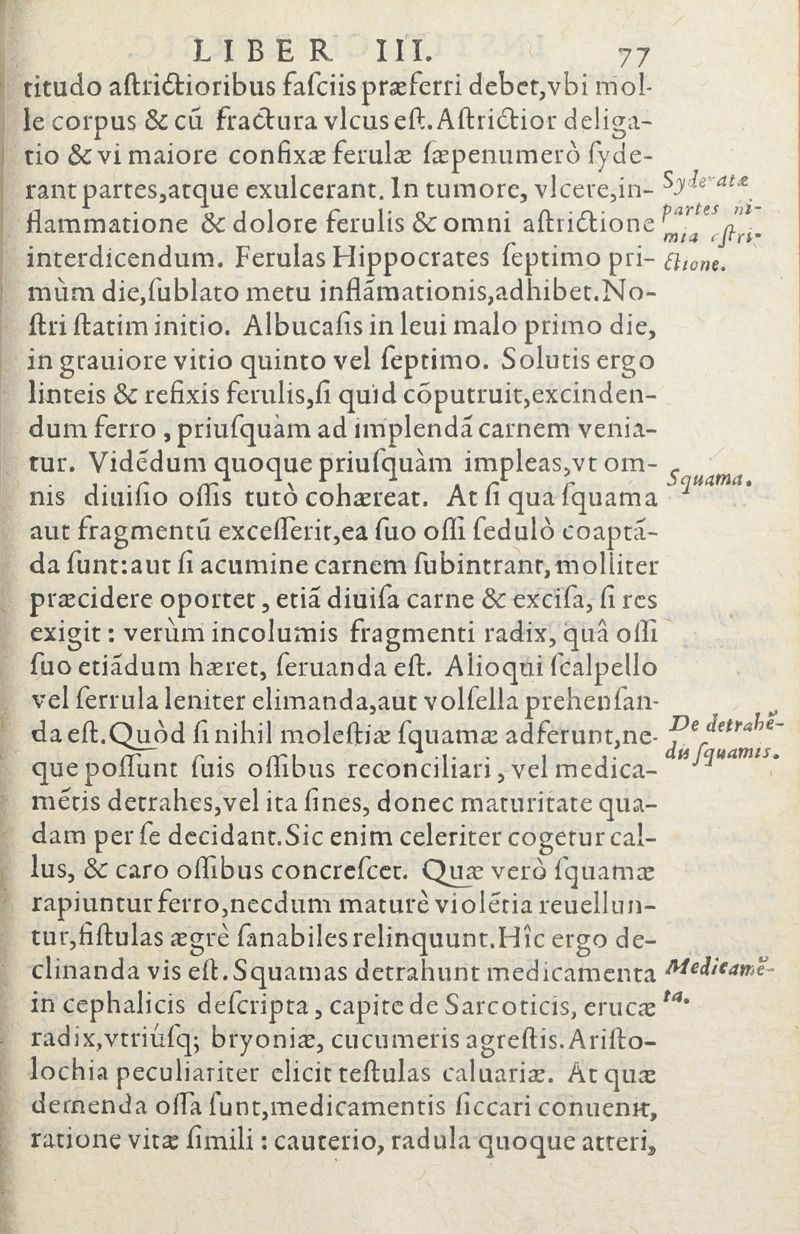 LIBER III. 77
titudo aſtrictioribus faſciis præferri debet,vbi mol-
le corpus & cū fractura vlcus eſt. Aſtrictior deliga-
tio & vi maiore confixæ ferulæ ſæpenumerò ſyde-
rant partes,atque exulcerant. In tumore, vlcere,in-
flammatione & dolore ferulis & omni aſtrictione
interdicendum. Ferulas Hippocrates ſeptimo pri-
mùm die,ſublato metu inflāmationis,adhibet. No-
ſtri ſtatim initio. Albucaſis in leui malo primo die,
in grauiore vitio quinto vel ſeptimo. Solutis ergo
linteis & refixis ferulis,ſi quid cōputruit,excinden-
dum ferro , priuſquàm ad implendā carnem venia-
tur. Vidēdum quoque priuſquàm impleas,vt om-
nis diuiſio oſſis tutò cohæreat. At ſi qua ſquama
aut fragmentū exceſſerit,ea ſuo oſſi ſedulò coaptā-
da ſunt:aut ſi acumine carnem ſubintrant, molliter
præcidere oportet , etiā diuiſa carne & exciſa, ſi res
exigit : verùm incolumis fragmenti radix, quâ oſſi
ſuo etiādum hæret, ſeruanda eſt. Alioqui ſcalpello
vel ſerrula leniter elimanda,aut volſella prehenſan-
da eſt. Quòd ſi nihil moleſtiæ ſquamæ adferunt,ne-
que poſſunt ſuis oſſibus reconciliari , vel medica-
mētis detrahes,vel ita ſines, donec maturitate qua-
dam per ſe decidant. Sic enim celeriter cogetur cal-
lus, & caro oſſibus concreſcet. Quæ verò ſquamæ
rapiuntur ferro,necdum maturè violētia reuellun-
tur,fiſtulas ægrè ſanabiles relinquunt. Hîc ergo de-
clinanda vis eſt. Squamas detrahunt medicamenta
in cephalicis deſcripta , capite de Sarcoticis, erucæ
radix,vtriúſq; bryoniæ, cucumeris agreſtis. Ariſto-
lochia peculiariter elicit teſtulas caluariæ. At quæ
demenda oſſa ſunt,medicamentis ſiccari conuenit,
ratione vitæ ſimili : cauterio, radula quoque atteri,
Syderatæ
partes ni-
mia aſtri-
ctione.
Squama.
De detrahē-
dis ſquamis.
Medicamē-
ta.